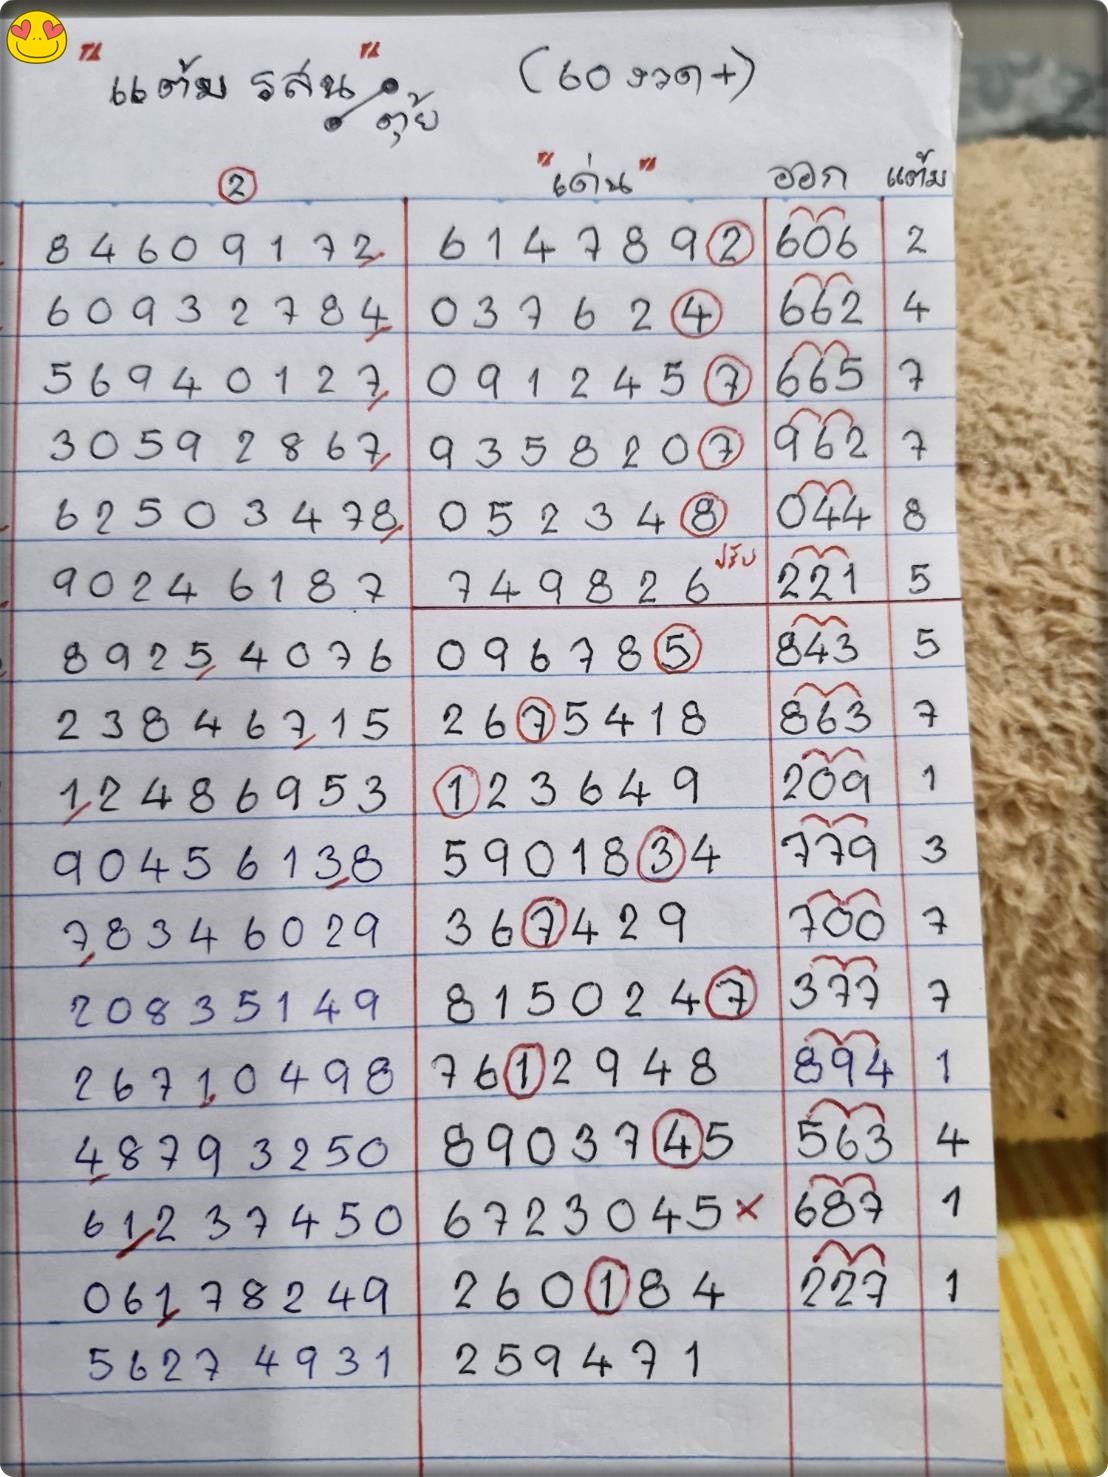 "แต้ม รสน" (60 งวด+)
ตุ้ย
② "เด่น" ออก แต้ม
8 4 6 0 9 1 7 2 6 1 4 7 8 9 2 606 2
6 0 9 3 2 7 8 4 0 3 7 6 2 4 662 4
5 6 9 4 0 1 2 7 0 9 1 2 4 5 7 665 7
3 0 5 9 2 8 6 7 9 3 5 8 2 0 7 962 7
6 2 5 0 3 4 7 8 0 5 2 3 4 8 044 8
9 0 2 4 6 1 8 7 7 4 9 8 2 6 ปรับ 221 5
8 9 2 5 4 0 7 6 0 9 6 7 8 5 843 5
2 3 8 4 6 7 1 5 2 6 7 5 4 1 8 863 7
1 2 4 8 6 9 5 3 1 2 3 6 4 9 209 1
9 0 4 5 6 1 3 8 5 9 0 1 8 3 4 779 3
7 8 3 4 6 0 2 9 3 6 7 4 2 9 700 7
2 0 8 3 5 1 4 9 8 1 5 0 2 4 7 377 7
2 6 7 1 0 4 9 8 7 6 1 2 9 4 8 894 1
4 8 7 9 3 2 5 0 8 9 0 3 7 4 5 563 4
6 1 2 3 7 4 5 0 6 7 2 3 0 4 5 × 687 1
0 6 1 7 8 2 4 9 2 6 0 1 8 4 227 1
5 6 2 7 4 9 3 1 2 5 9 4 7 1